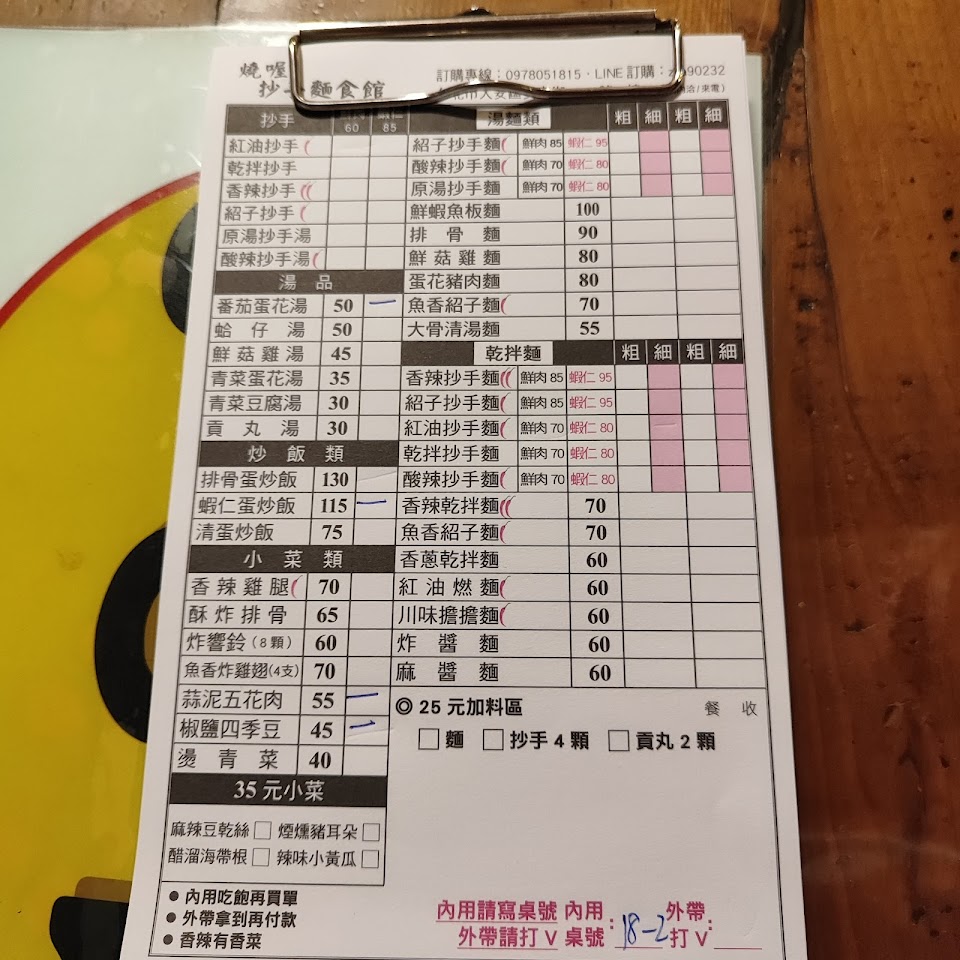 燒喔
抄 麵食館
訂購專線：0978051815．LINE 訂購：
抄手 60 85
紅油抄手
乾拌抄手
香辣抄手
紹子抄手
原湯抄手湯
酸辣抄手湯
湯 品
番茄蛋花湯 50 一
蛤仔湯 50
鮮菇雞湯 45
青菜蛋花湯 35
青菜豆腐湯 30
貢丸湯 30
炒飯類
排骨蛋炒飯 130
蝦仁蛋炒飯 115 一
清蛋炒飯 75
小菜類
香辣雞腿 70
酥炸排骨 65
炸響鈴（8顆） 60
魚香炸雞翅(4支) 70
蒜泥五花肉 55 一
椒鹽四季豆 45 一
燙青菜 40
35 元小菜
麻辣豆乾絲 □ 煙燻豬耳朵 □
醋溜海帶根 □ 辣味小黃瓜 □
● 內用吃飽再買單
● 外帶拿到再付款
● 香辣有香菜
湯麵類 粗 細 粗 細
紹子抄手麵 鮮肉 85 蝦仁 95
酸辣抄手麵 鮮肉 70 蝦仁 80
原湯抄手麵 鮮肉 70 蝦仁 80
鮮蝦魚板麵 100
排骨麵 90
鮮菇雞麵 80
蛋花豬肉麵 80
魚香紹子麵 70
大骨清湯麵 55
乾拌麵 粗 細 粗 細
香辣抄手麵 鮮肉 85 蝦仁 95
紹子抄手麵 鮮肉 85 蝦仁 95
紅油抄手麵 鮮肉 70 蝦仁 80 一
乾拌抄手麵 鮮肉 70 蝦仁 80
酸辣抄手麵 鮮肉 70 蝦仁 80
香辣乾拌麵 70
魚香紹子麵 70
香蔥乾拌麵 60
紅油燃麵 60
川味擔擔麵 60
炸醬麵 60
麻醬麵 60
◎ 25 元加料區 餐 收
□ 麵 □ 抄手 4 顆 □ 貢丸 2 顆
內用請寫桌號 內用桌號：18-2 外帶打 V：
外帶請打 V